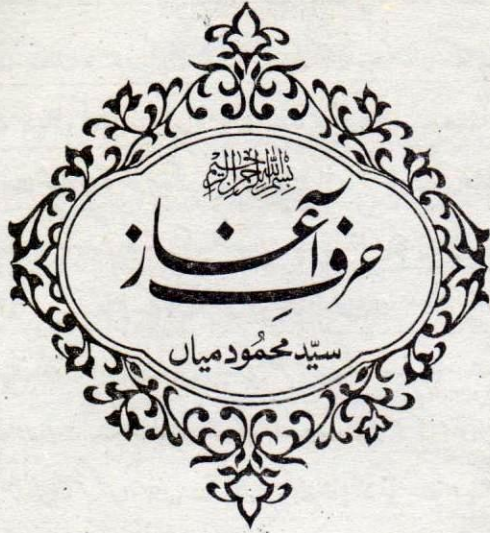 بِسْمِ اللهِ الرَّحْمٰنِ الرَّحِيْمِ
حرفِ آغاز
سیّد محمُود میاں